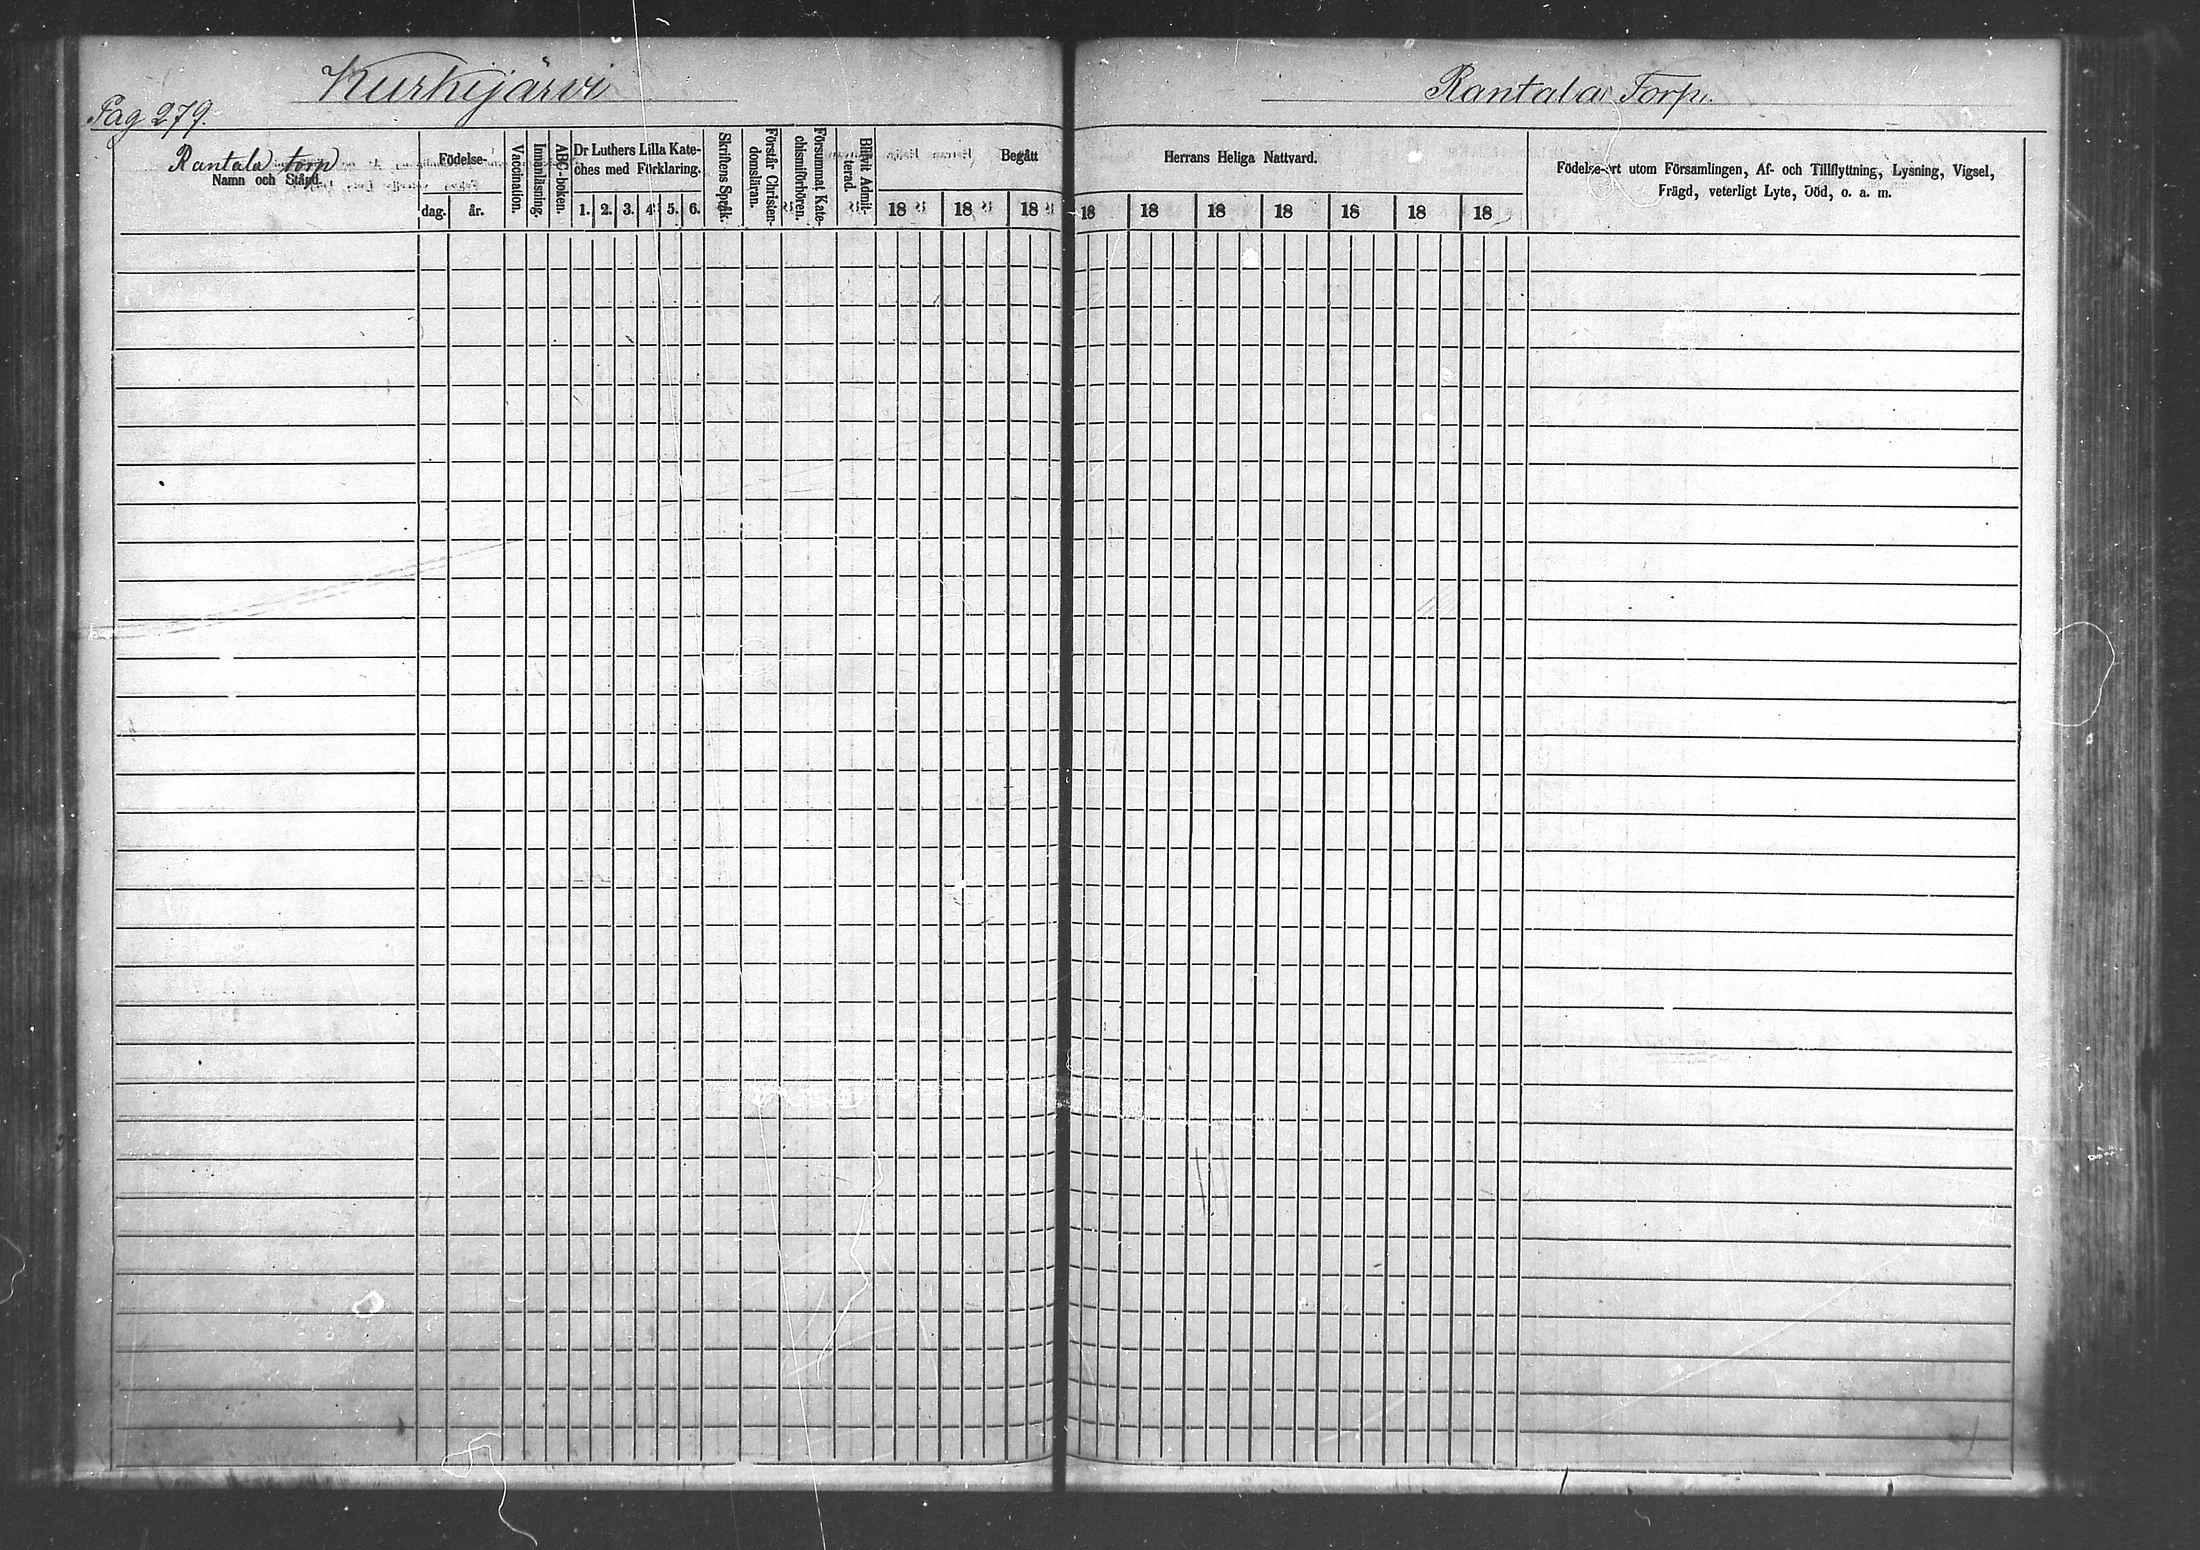 Kurkijärvi
Rantala Torp.
Pag 279.
Rantala torp
Namn och Stånd.
Födelse-
dag. år.
Vaccination.
Innanläsning.
ABC-boken.
Dr Luthers Lilla Kate-
ches med Förklaring.
1. 2. 3. 4. 5. 6.
Skriftens Språk.
Förstår Christen-
domsläran.
Försummat Kate-
chismiförhören.
Blifvit Admit-
terad.
Begått Herrans Heliga Nattvard.
18 18 18 18 18 18 18 18 18 18
Födelse-ort utom Församlingen, Af- och Tillflyttning, Lysning, Vigsel,
Frägd, veterligt Lyte, Död, o. a. m.